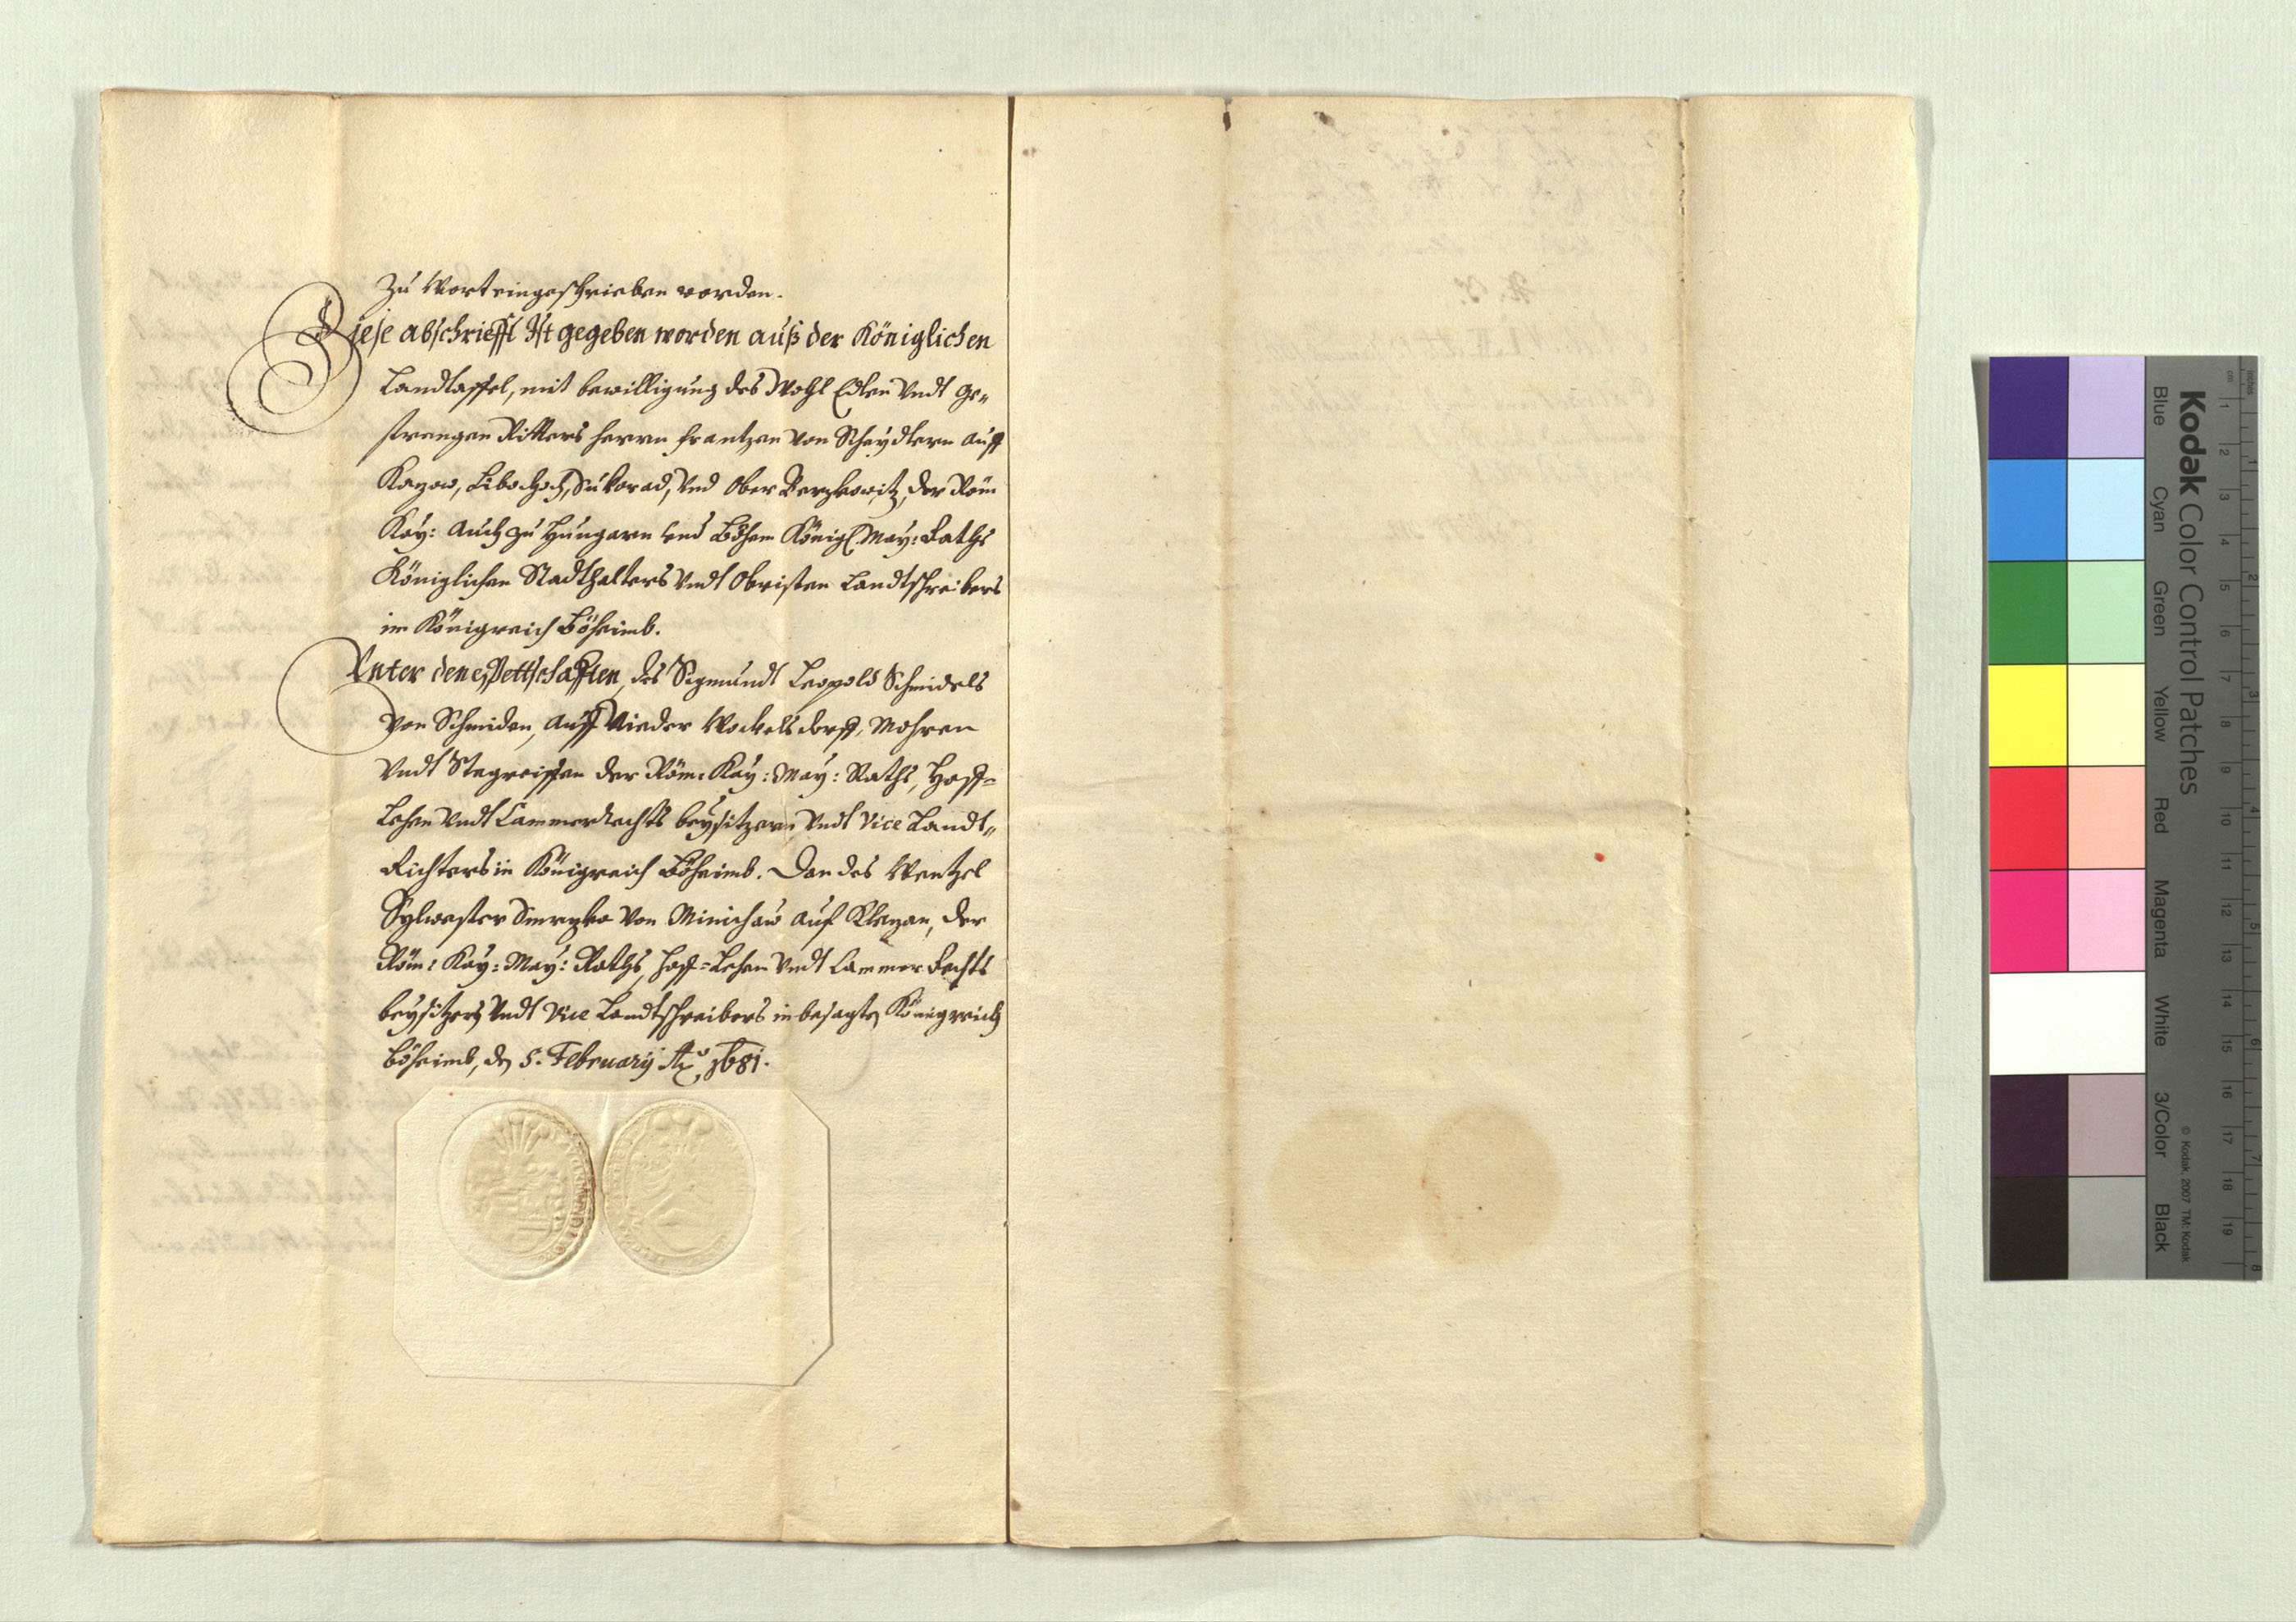 Zu Wort eingeschrieben worden.
Diese abschriefft Ist gegeben worden auß der Königlichen
Landtaffel, mit bewilligung des Wohl Edlen Undt Ge„
strengen Ritters herrn frantzen Von Scheydlern auff
Kazow, Libochoch, Sukorad, Und Ober Berzkowitz, der Röm
Kay: Auch zu Hungarn Und Böhem Königl. May: Raths
Königlichen Stadthalters Undt Obristen Landtschreibers
im Königreich Böheimb.
Unter denen Pettschafften, des Sigmundt Leopold Schmidels
Von Schmiden, auff Nieder Wockelsdorff, Mohren
Undt Stegreiffen der Röm: Kay: May: Raths, Hoff=
Lehen Undt Cammerrechts beysitzern Undt Vice Landt„
Richters in Königreich Böheimb. Dan des Wentzel
Sylvester Smrzka Von Minichaw auf Klezan, der
Röm: Kay: May: Raths, Hoff=Lehen Undt Cammer Rechts
beysitzers Undt Vice Landtschreibers in besagten Königreich
Böheimb, den 5. February Ao 1681.
Kodak Color Control Patches
Blue Cyan Green Yellow Red Magenta White 3/Color Black
© Kodak, 2007 TM: Kodak
inches 1 2 3 4 5 6 7 8
cm 1 2 3 4 5 6 7 8 9 10 11 12 13 14 15 16 17 18 19